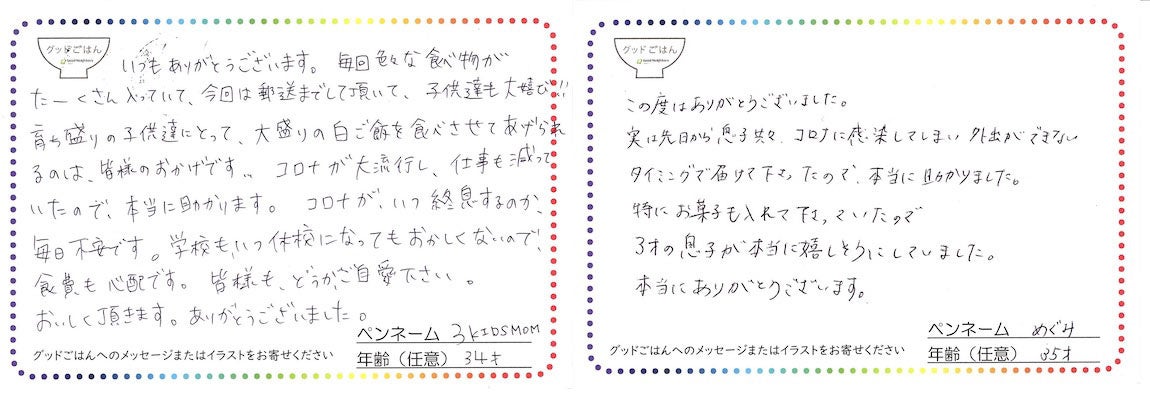 グッドごはん
Good Neighbors
いつもありがとうございます。毎回色々な食べ物が
たーくさん入っていて、今回は郵送までして頂いて、子供達も大喜び!!
育ち盛りの子供達にとって、大盛りの白ご飯を食べさせてあげられ
るのは、皆様のおかげです。コロナが大流行し、仕事も減って
いたので、本当に助かります。コロナが、いつ終息するのか、
毎日不安です。学校もいつ休校になってもおかしくないので、
食費も心配です。皆様も、どうかご自愛下さい。
おいしく頂きます。ありがとうございました。
ペンネーム 3KIDSMOM
グッドごはんへのメッセージまたはイラストをお寄せください
年齢（任意） 34才
グッドごはん
Good Neighbors
この度はありがとうございました。
実は先日から息子共々、コロナに感染してしまい外出ができない
タイミングで届けて下さったので、本当に助かりました。
特にお菓子も入れて下さっていたので
3才の息子が本当に嬉しそうにしていました。
本当にありがとうございます。
ペンネーム めぐみ
グッドごはんへのメッセージまたはイラストをお寄せください
年齢（任意） 35才